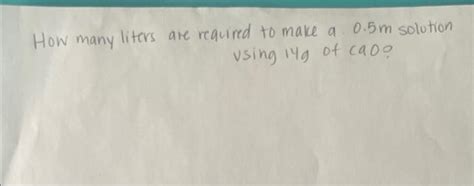 How many liters are required to make a 0.5m solution
using 14g of CaO?